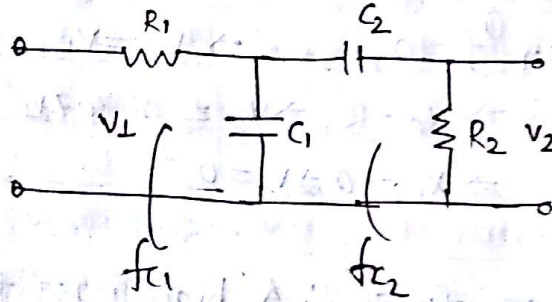 R1 C2
V1 C1 R2 V2
fc1 fc2